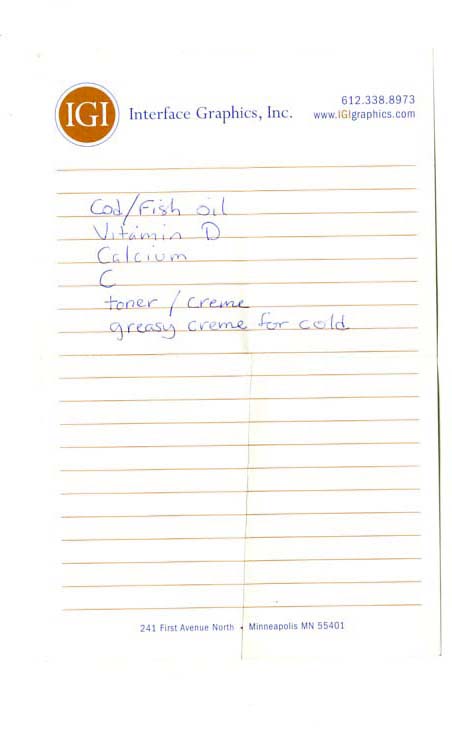 IGI
Interface Graphics, Inc.
612.338.8973
www.IGIgraphics.com
Cod/Fish oil
Vitamin D
Calcium
C
toner / creme
greasy creme for cold
241 First Avenue North • Minneapolis MN 55401